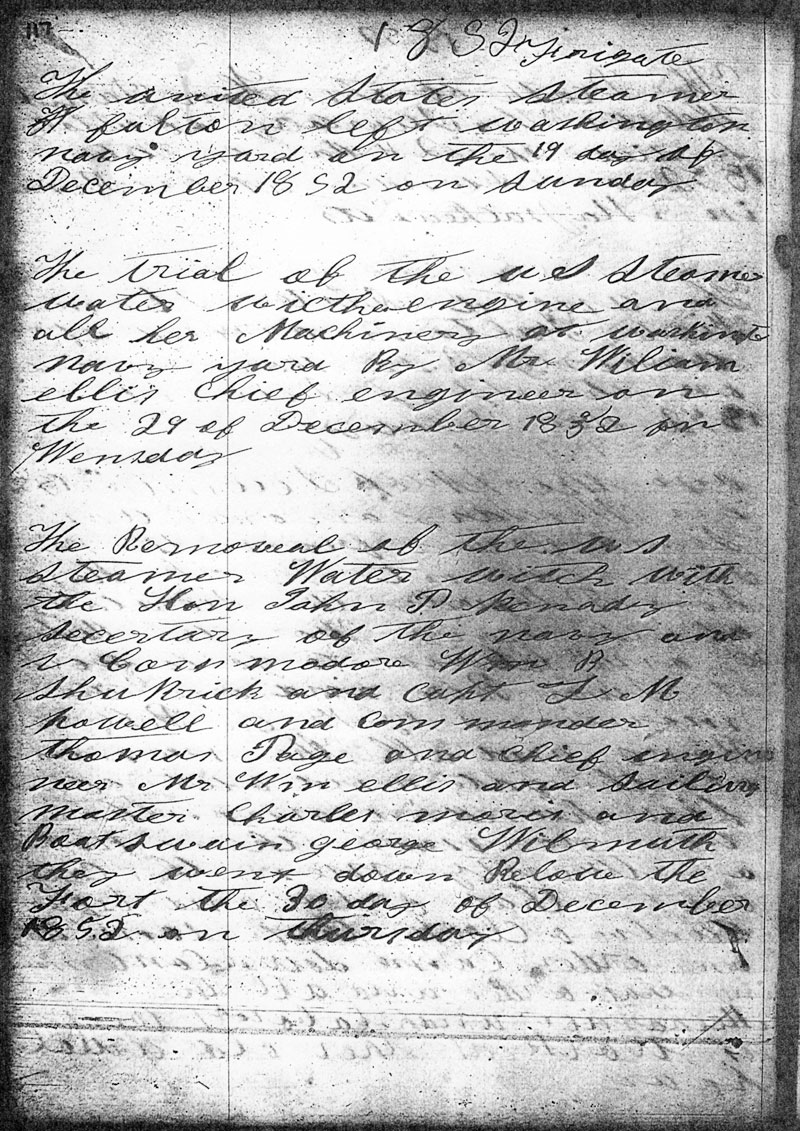 117
S Frigate
The united States steamer
fulton left washington
navy yard on the 19 day of
December 1852 on sunday
The trial of the u s steamer
water wicth engine and
all her Machinery at washint
navy yard By Mr Wiliam
ellis Chief engineer on
the 29 of December 1852 on
Wensday
The Removeal of the u s
steamer Water witch with
the Hon John P Kenady
secertary of the navy and
Commodore Wm B
shuBrick and Capt L M
powell and Commander
thomas Page and Chief engin
neer Mr Wm ellis and Sailing
master Charles moris and
Boatswain george Wilmuth
they went down Belowe the
Fort the 30 day of December
1852 on thursday